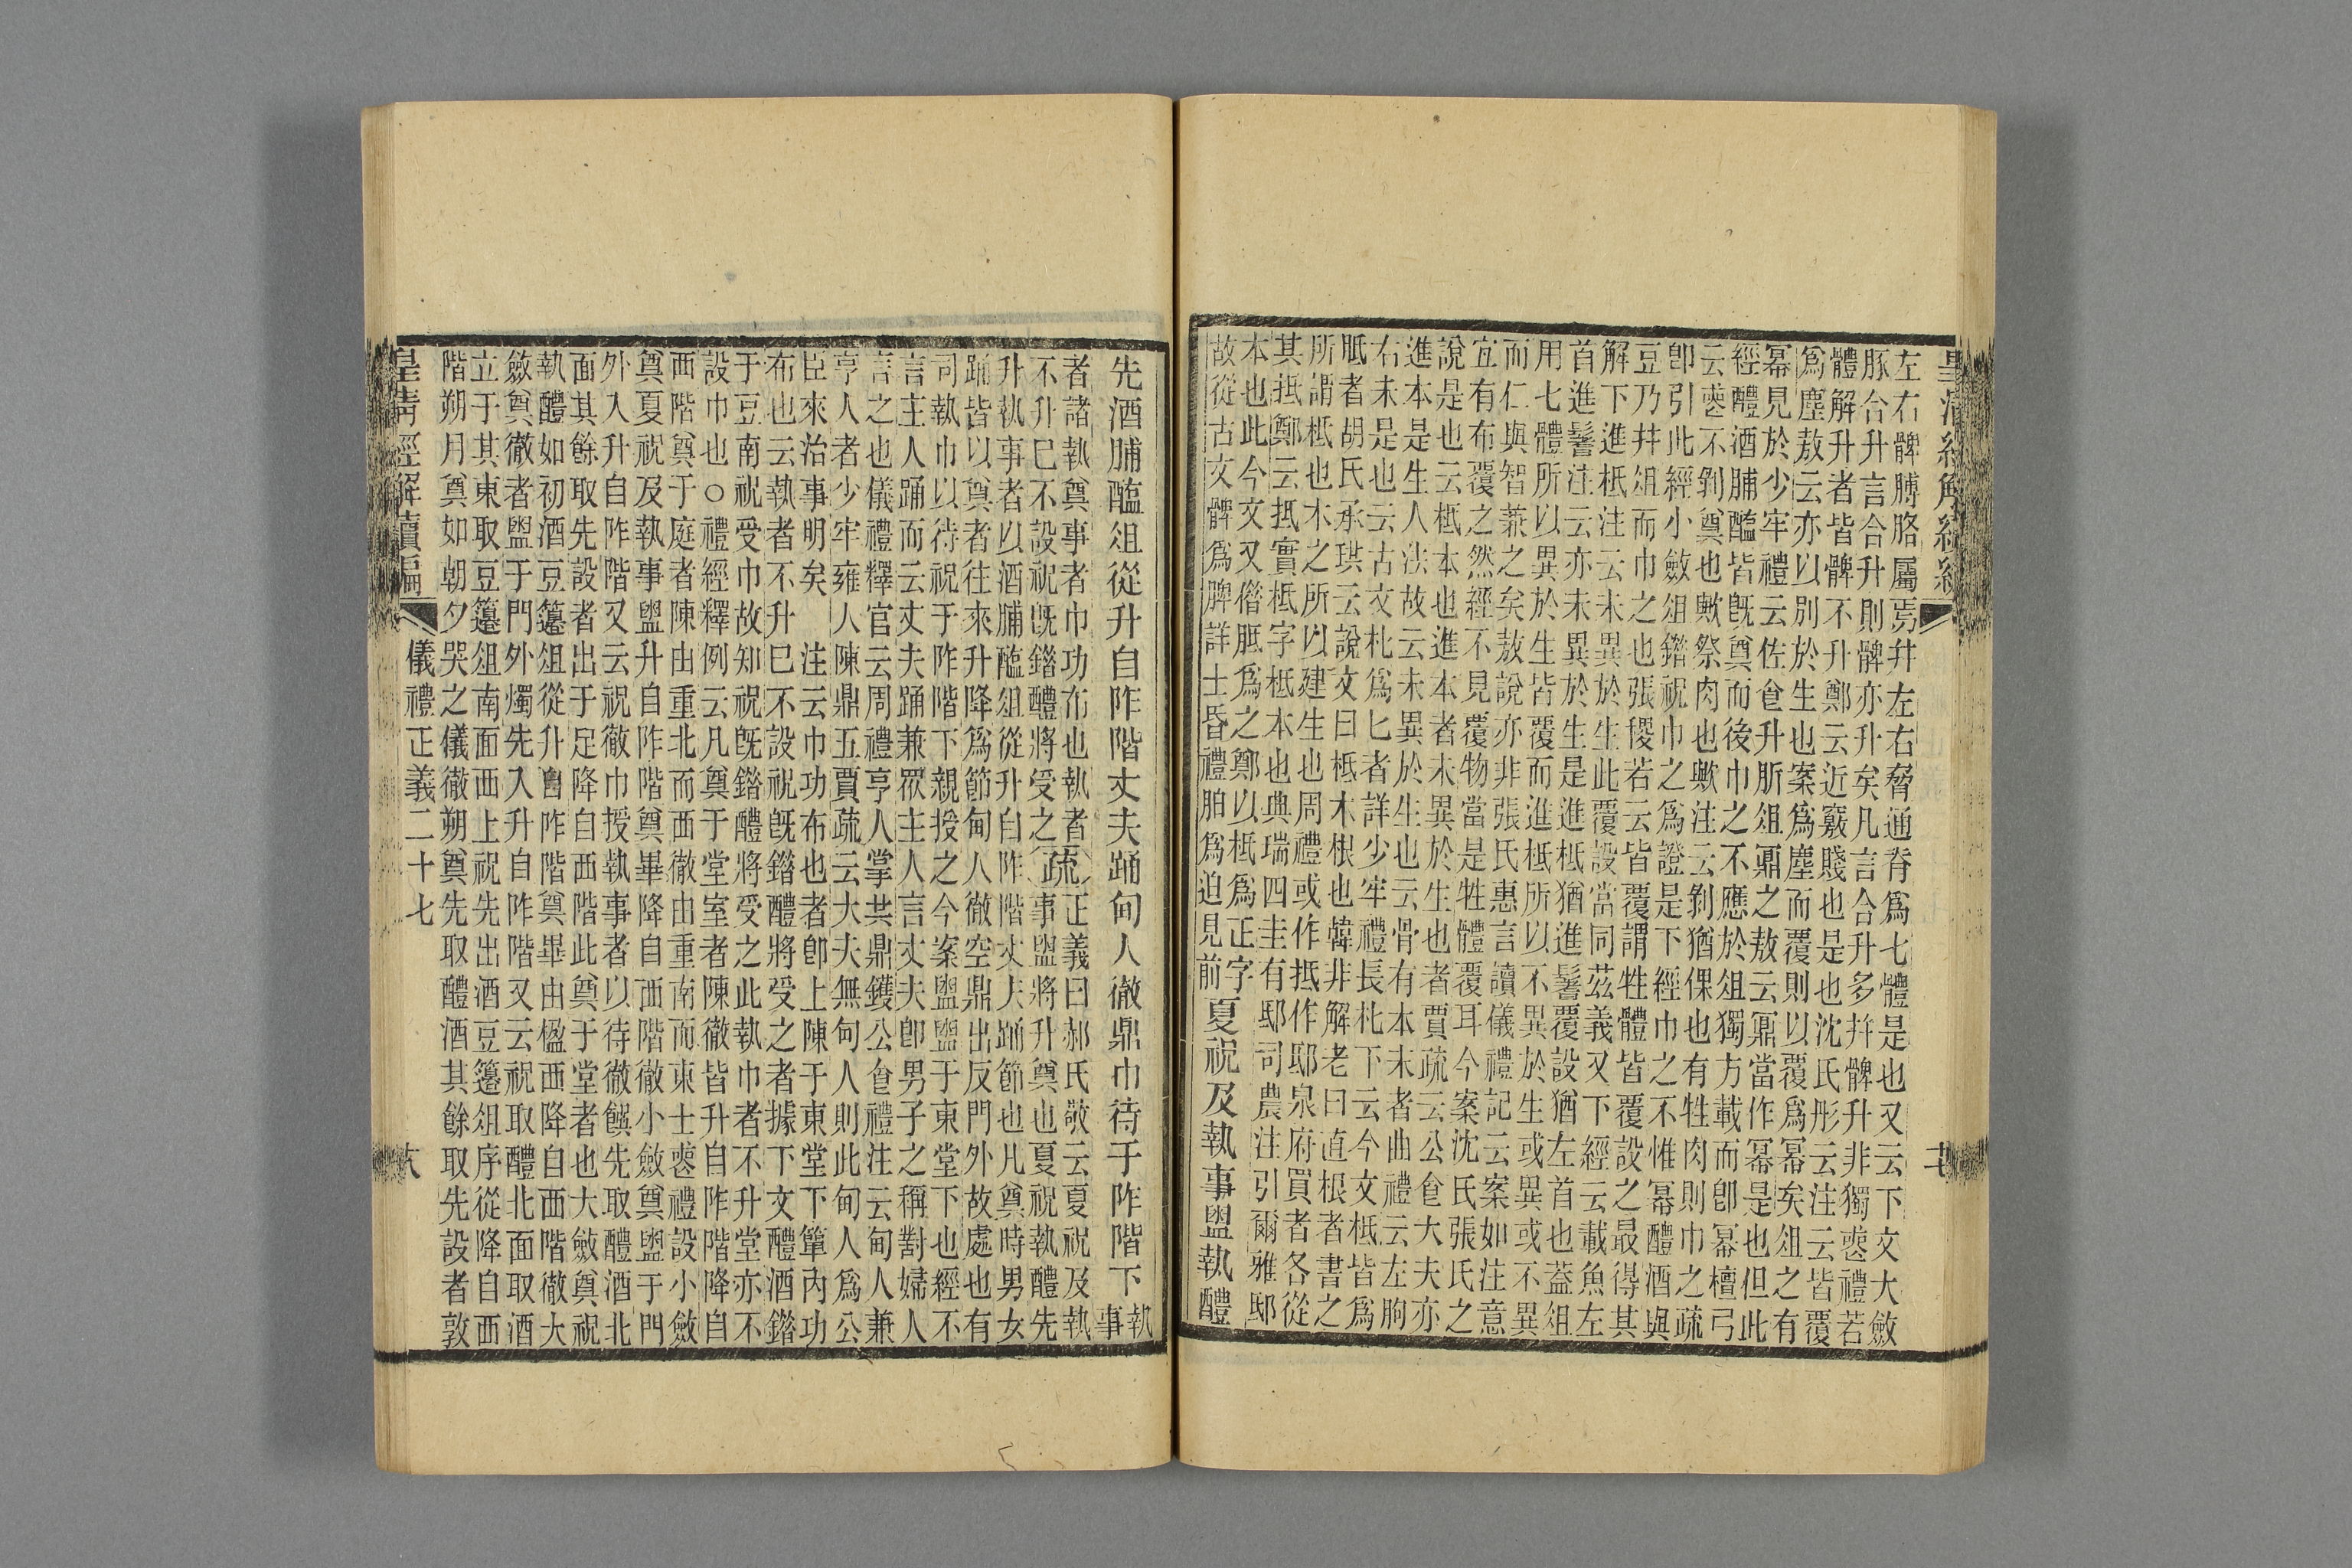 左右髀膊胳屬焉并左右脅通脊爲七體是也又云下文大斂
豚合升言合升則髀亦升矣凡言合升多并髀升非獨喪禮若
體解升者皆髀不升鄭云近竅賤也是也沈氏彤云注云皆覆
爲塵敖云亦以別於生也案爲塵而覆則以覆爲冪矣俎之有
冪見於少牢禮云佐食升肵俎鼏之敖云鼏當作冪是也但此
經醴酒脯醢皆旣奠而後巾之不應於俎獨方載而卽冪檀弓
云喪不剝奠也歟祭肉也歟注云剝猶倮也有牲肉則巾之疏
卽引此經小斂俎錯祝巾之爲證是下經巾之不惟冪醴酒與
豆乃并俎而巾之也張稷若云皆覆謂牲體皆覆設之最得其
解下進柢注云未異於生此覆設當同茲義又下經云載魚左
首進鬐注云亦未異於生是進柢猶進鬐覆設猶左首也蓋俎
用七體所以異於生皆覆而進柢所以不異於生或異或不異
而仁與智兼之矣敖說亦非張氏惠言讀儀禮記云案如注意
宜有布覆之然經不見覆物當是牲體覆耳今案沈氏張氏之
說是也云柢本也進本者未異於生也者賈疏云公食大夫亦
進本是生人法故云未異於生也云骨有本末者曲禮云左朐
右末是也云古文朼爲匕者詳少牢禮長朼下云今文柢皆爲
胝者胡氏承珙云說文曰柢木根也韓非解老曰直根者書之
所謂柢也木之所以建生也周禮或作抵作邸泉府買者各從
其抵鄭云抵實柢字柢本也典瑞四圭有邸司農注引爾雅邸
本也此今文又僣胝爲之鄭以柢爲正字
故從古文髀爲脾詳士昏禮胉爲迫見前夏祝及執事盥執醴
先酒脯醢俎從升自阼階丈夫踊甸人徹鼎巾待于阼階下執事
者諸執奠事者巾功布也執者
不升巳不設祝旣錯醴將受之疏正義曰郝氏敬云夏祝及執
事盥將升奠也夏祝執醴先
升執事者以酒脯醢俎從升自阼階丈夫踊節也凡奠時男女
踊皆以奠者往來升降爲節甸人徹空鼎出反門外故處也有
司執巾以待祝于阼階下親授之今案盥盥于東堂下也經不
言主人踊而云丈夫踊兼眾主人言丈夫卽男子之稱對婦人
言之也儀禮釋官云周禮亨人掌共鼎鑊公食禮注云甸人兼
亨人者少牢雍人陳鼎五賈疏云大夫無甸人則此甸人爲公
臣來治事明矣　注云巾功布也者卽上陳于東堂下簞內功
布也云執者不升巳不設祝旣錯醴將受之者據下文醴酒錯
于豆南祝受巾故知祝旣錯醴將受之此執巾者不升堂亦不
設巾也○禮經釋例云凡奠于堂室者陳徹皆升自阼階降自
西階奠于庭者陳由重北而西徹由重南而東士喪禮設小斂
奠夏祝及執事盥升自阼階奠畢降自西階徹小斂奠盥于門
外入升自阼階又云祝徹巾授執事者以待徹饌先取醴酒北
面其餘取先設者出于足降自西階此奠于堂者也大斂奠祝
執醴如初酒豆籩俎從升自阼階奠畢由楹西降自西階徹大
斂奠徹者盥于門外燭先入升自阼階又云祝取醴北面取酒
立于其東取豆籩俎南面西上祝先出酒豆籩俎序從降自西
階朔月奠如朝夕哭之儀徹朔奠先取醴酒其餘取先設者敦
皇淸經解續編　儀禮正義二十七